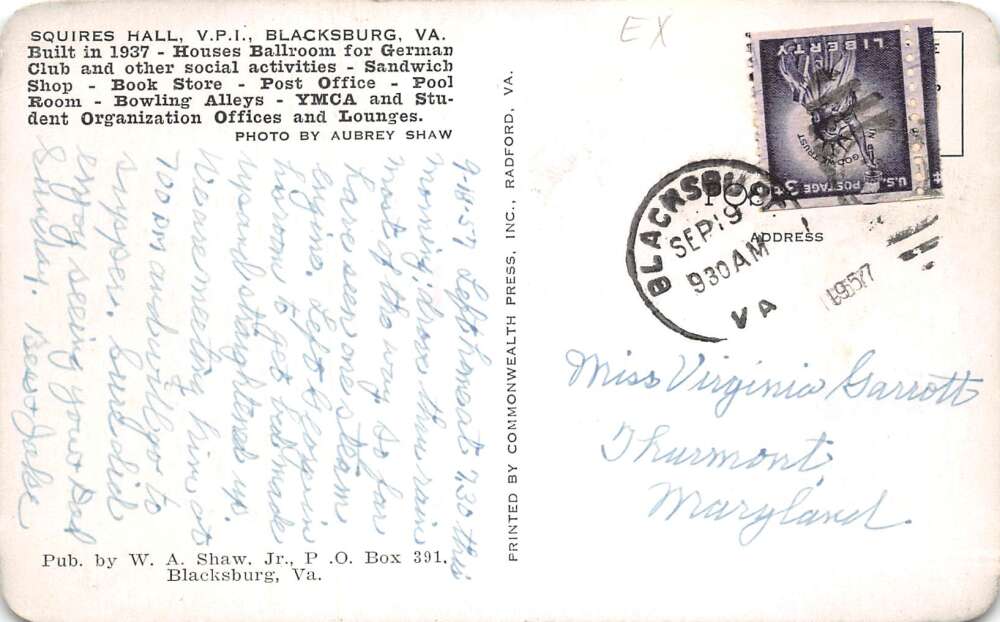 SQUIRES HALL, V.P.I., BLACKSBURG, VA.
Built in 1937 - Houses Ballroom for German
Club and other social activities - Sandwich
Shop - Book Store - Post Office - Pool
Room - Bowling Alleys - YMCA and Stu-
dent Organization Offices and Lounges.
PHOTO BY AUBREY SHAW
9-18-57 Left home at 7:30 this
morning, drove thru rain
most of the way. So far
have seen one steam
engine. Left Hopin
his room to get bed made
up and straightened up.
We are meeting him at
7 00 pm and will go to
suppers. Sundaid
enjoy seeing your Dad
Sunday. Bess + Jake
Pub. by W. A. Shaw, Jr., P .O. Box 391,
Blacksburg, Va.
PRINTED BY COMMONWEALTH PRESS, INC., RADFORD, VA.
EX
LIBERTY
IN
GOD WE TRUST
U.S. POSTAGE 3¢
POS
ADDRESS
BLACKSBURG
SEP 19
930 AM
1957
VA
Miss Virginia Garrott
Thurmont,
Maryland.